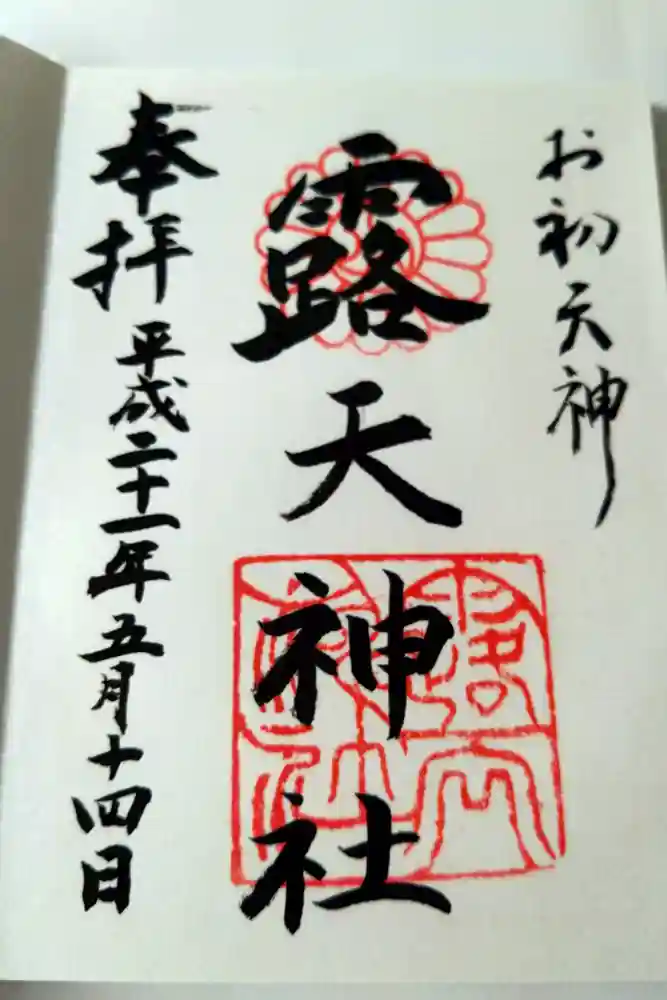 お初天神
露天神社
奉拝
平成二十一年五月十四日